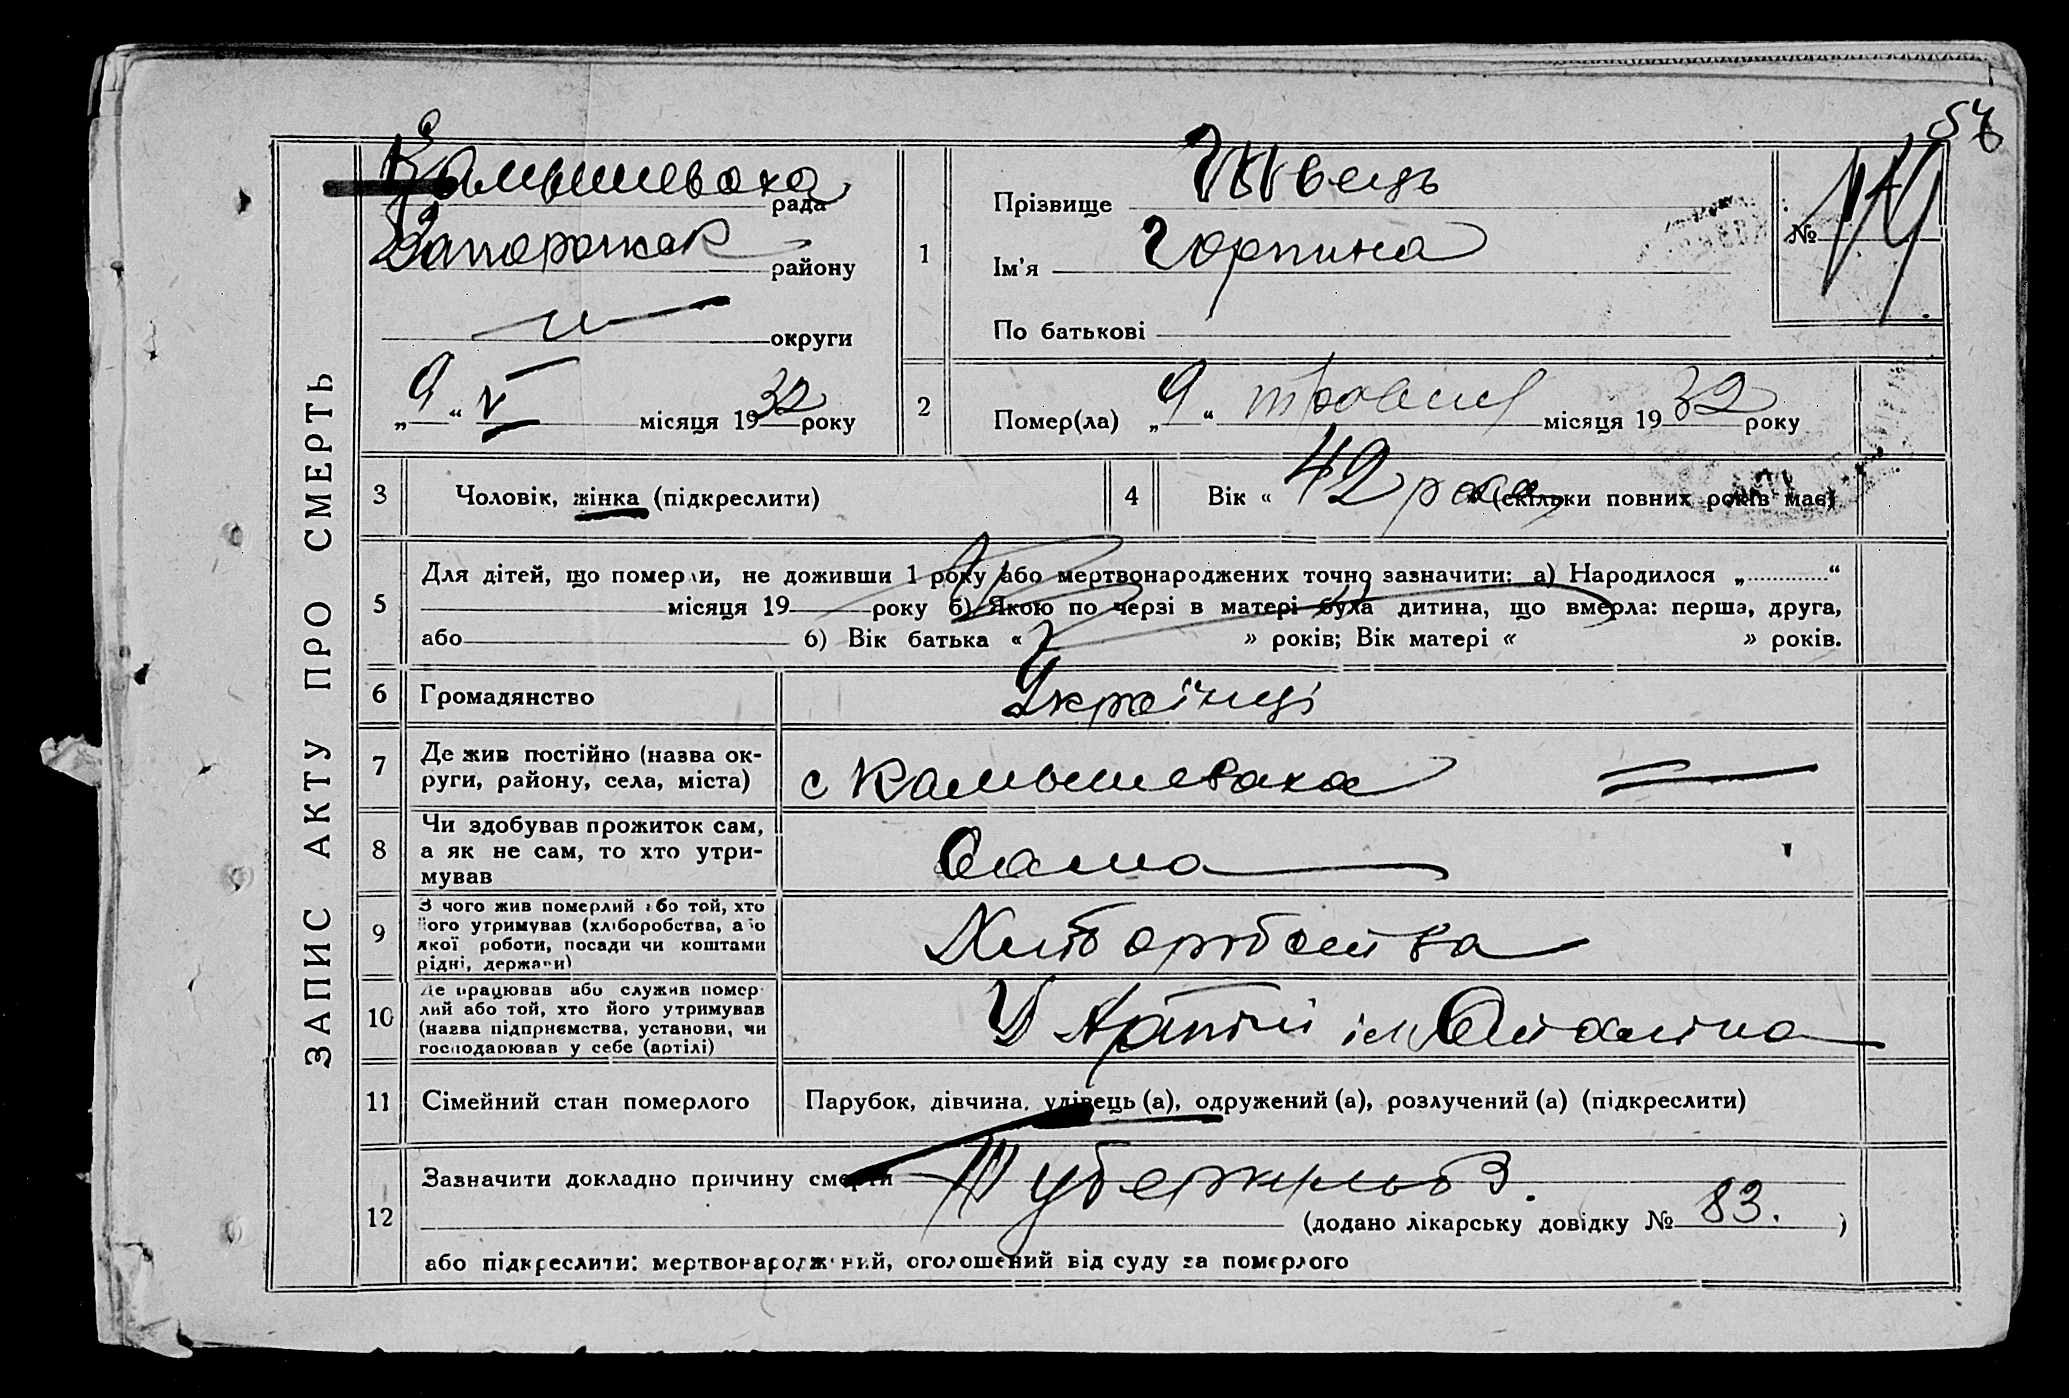 ЗАПИС АКТУ ПРО СМЕРТЬ
Камышеваха
рада
району
округи
„9“ V місяця 1932 року
1
Прізвище Швець
Ім'я Горпина
По батькові
№
2
Помер(ла) „9“ травня місяця 1932 року
3
Чоловік, жінка (підкреслити)
4
Вік « 42 (скільки повних років має)
5
Для дітей, що померли, не доживши 1 року або мертвонароджених точно зазначити: а) Народилося „ “
місяця 19 року б) Якою по черзі в матері була дитина, що вмерла: перша, друга,
або 6) Вік батька « » років; Вік матері « » років.
6
Громадянство
Українці
7
Де жив постійно (назва ок-
руги, району, села, міста)
с Камышеваха
8
Чи здобував прожиток сам,
а як не сам, то хто утри-
мував
Сама
9
З чого жив померлий або той, хто
його утримував (хліборобства, або
якої роботи, посади чи коштами
рідні, держави)
10
Де працював або служив помер-
лий або той, хто його утримував
(назва підприємства, установи, чи
господарював у себе (артілі)
У Артілі ім Сталіна
11
Сімейний стан померлого
Парубок, дівчина, удівець (а), одружений (а), розлучений (а) (підкреслити)
12
Зазначити докладно причину смерти Туберкульоз.
(додано лікарську довідку № 83. )
або підкреслити: мертвонароджений, оголошений від суду за померлого